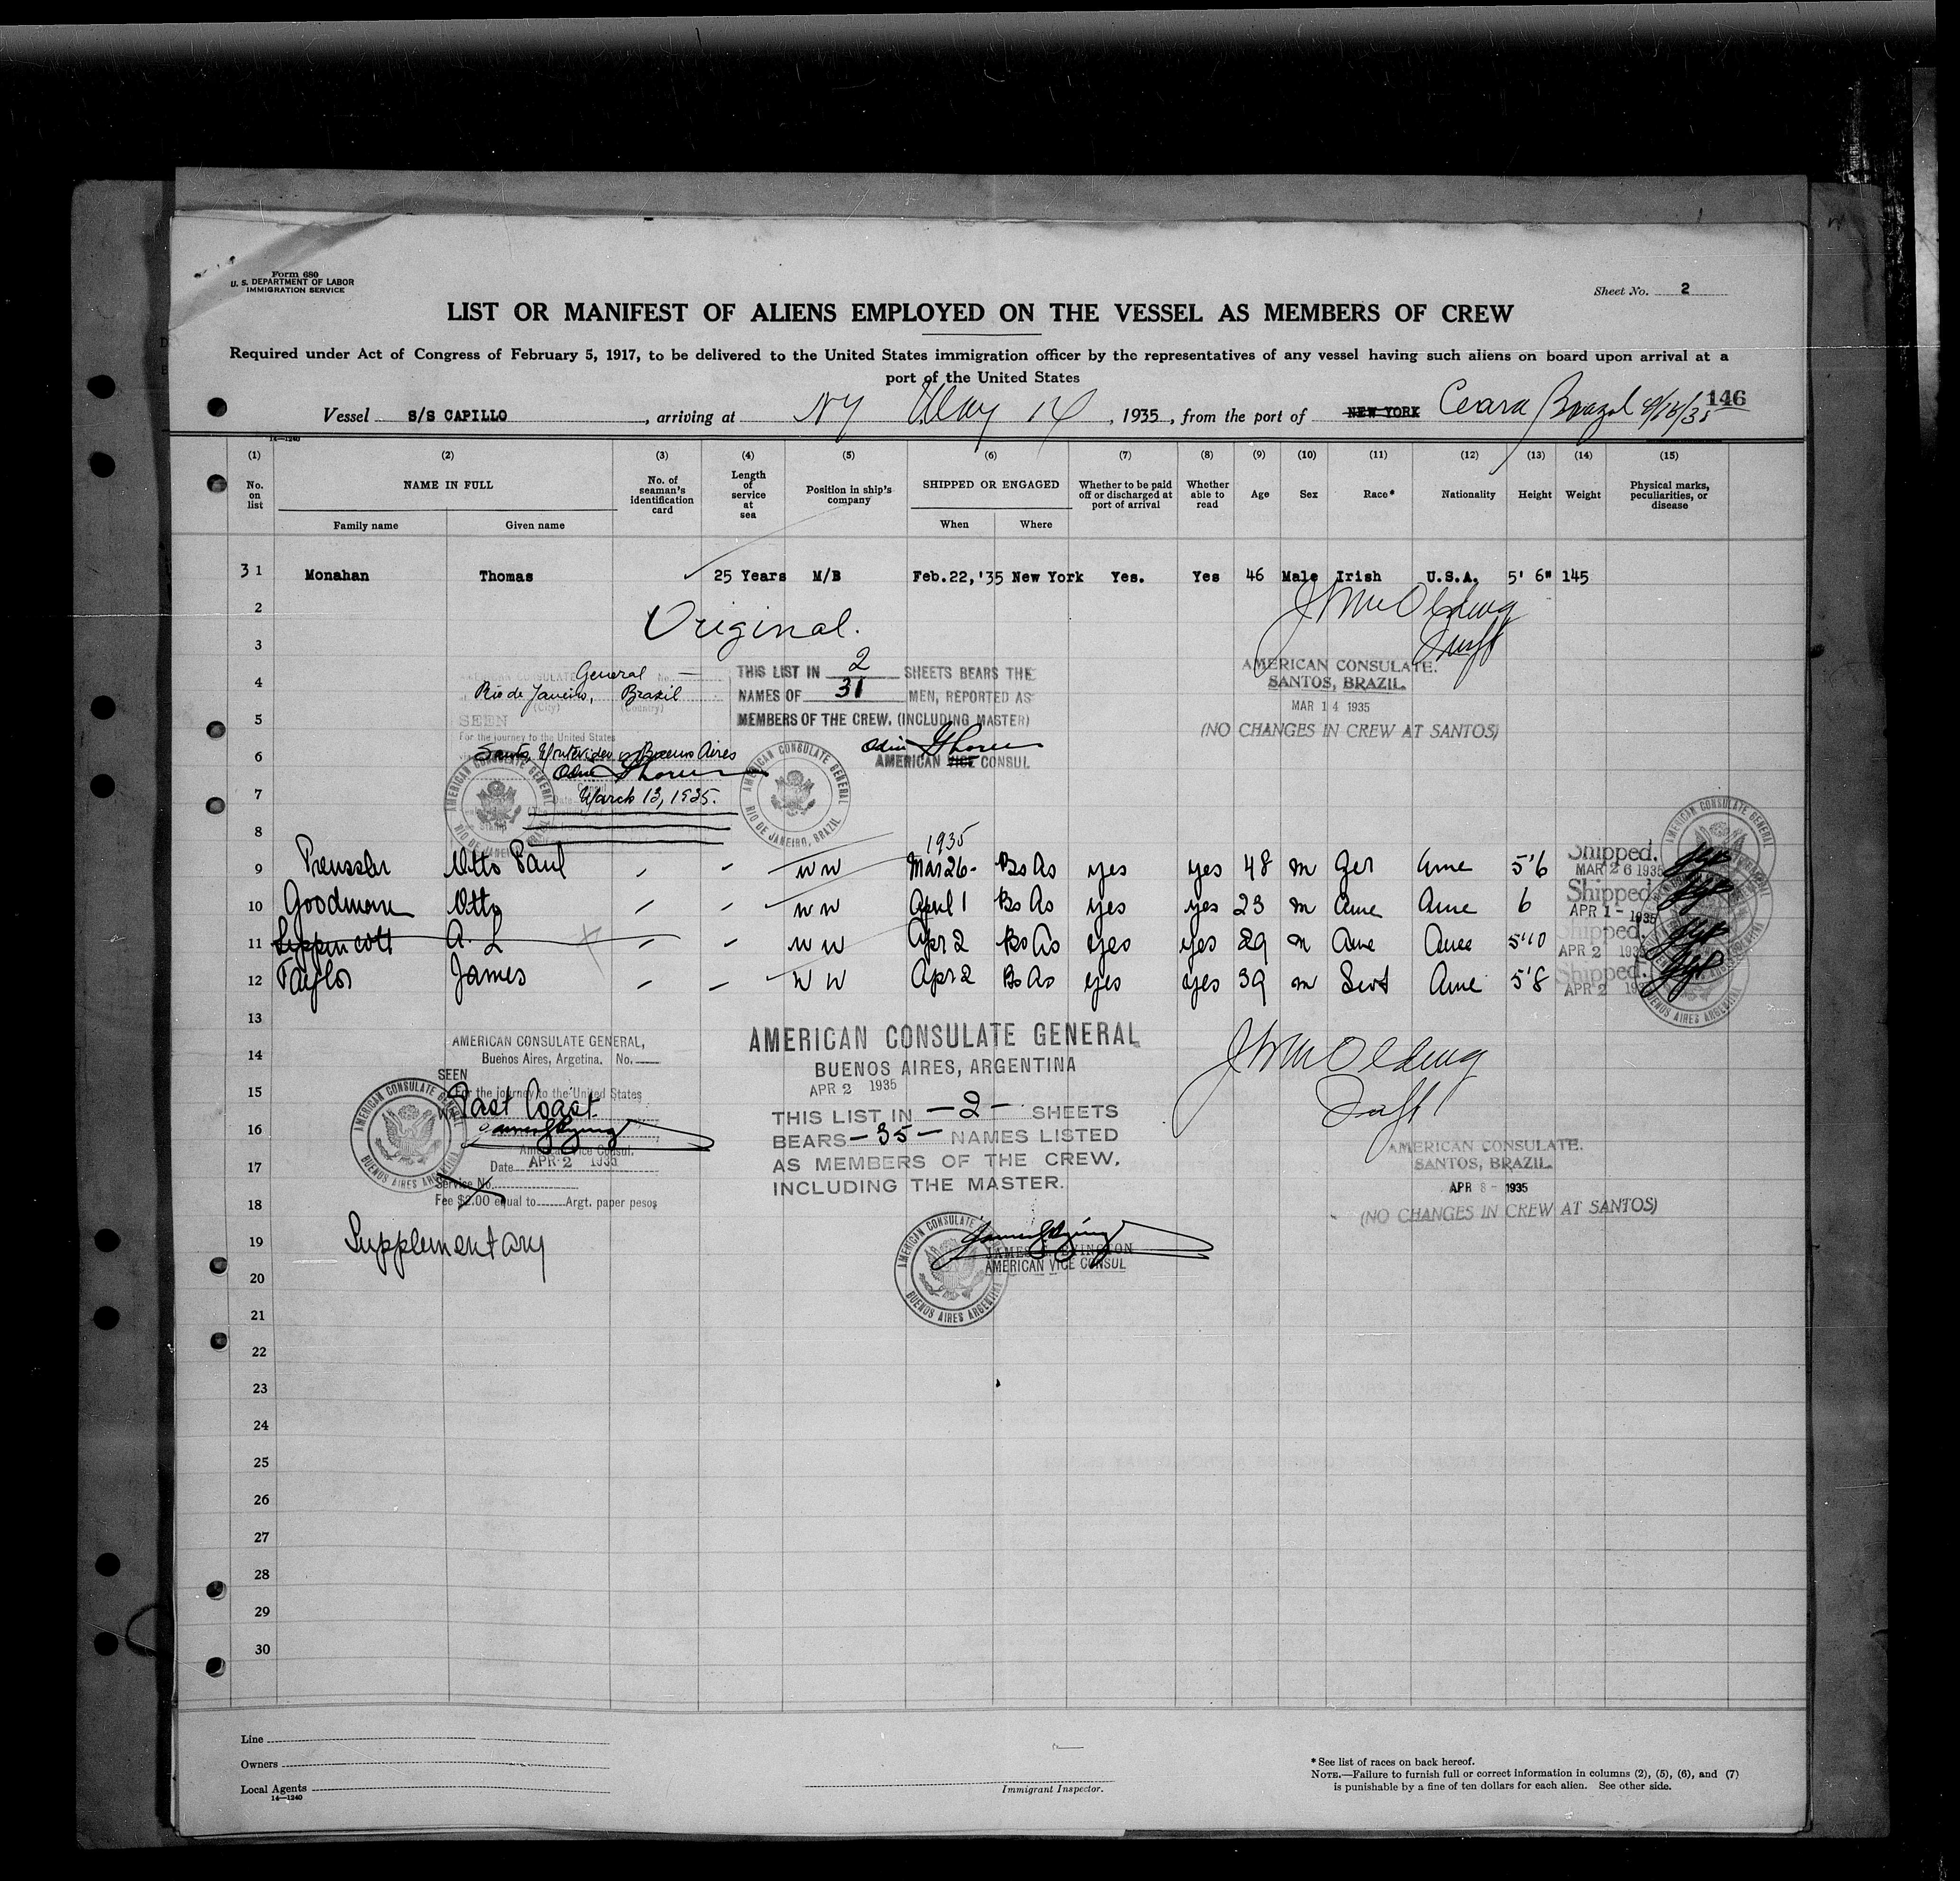 Form 680
U. S. DEPARTMENT OF LABOR
IMMIGRATION SERVICE
Sheet No. 2
LIST OR MANIFEST OF ALIENS EMPLOYED ON THE VESSEL AS MEMBERS OF CREW
Required under Act of Congress of February 5, 1917, to be delivered to the United States immigration officer by the representatives of any vessel having such aliens on board upon arrival at a
port of the United States
146
Vessel S/S CAPILLO, arriving at NY May 14, 1935, from the port of NEW YORK Ceara Brazil
14—1240
(1) (2) (3) (4) (5) (6) (7) (8) (9) (10) (11) (12) (13) (14) (15)
No. on list
NAME IN FULL
Family name
Given name
No. of seaman's identification card
Length of service at sea
Position in ship's company
SHIPPED OR ENGAGED
When
Where
Whether to be paid off or discharged at port of arrival
Whether able to read
Age
Sex
Race*
Nationality
Height
Weight
Physical marks, peculiarities, or disease
31 Monahan Thomas 25 Years M/B Feb.22,'35 New York Yes. Yes 46 Male Irish U.S.A. 5' 6" 145
2
Original.
3
General
Rio de Janeiro, Brazil
(City) (Country)
SEEN
For the journey to the United States
Santos, Montevideo, Buenos Aires
March 13, 1935.
AMERICAN CONSULATE GENERAL
RIO DE JANEIRO, BRAZIL
THIS LIST IN 2 SHEETS BEARS THE
NAMES OF 31 MEN, REPORTED AS
MEMBERS OF THE CREW. (INCLUDING MASTER)
AMERICAN VICE CONSUL
AMERICAN CONSULATE GENERAL
RIO DE JANEIRO, BRAZIL
AMERICAN CONSULATE.
SANTOS, BRAZIL.
MAR 14 1935
(NO CHANGES IN CREW AT SANTOS)
4
5
6
7
8
1935
9 Preussler Otto Paul - - W W Mar 26- Bs As yes yes 48 m Ger Ame 5'6 Shipped. MAR 26 1935
10 Goodman Otto - - W W April 1 Bs As yes yes 23 m Ame Ame 6 Shipped. APR 1 - 1935
11 Lippincott A. L - - W W Apr 2 Bs As yes yes 29 m Ame Ame 5'10 Shipped. APR 2 1935
12 Taylor James - - W W Apr 2 Bs As yes yes 39 m Scot Ame 5'8 Shipped. APR 2 193
AMERICAN CONSULATE GENERAL
BUENOS AIRES ARGENTINA
13
14
15
16
17
18
AMERICAN CONSULATE GENERAL,
Buenos Aires, Argetina. No.
SEEN
For the journey to the United States
Via East Coast
American Vice Consul.
Date APR 2 1935
Service No.
Fee $2.00 equal to Argt. paper pesos
AMERICAN CONSULATE GENERAL
BUENOS AIRES ARGENTINA
AMERICAN CONSULATE GENERAL
BUENOS AIRES, ARGENTINA
APR 2 1935
THIS LIST IN -2- SHEETS
BEARS -35- NAMES LISTED
AS MEMBERS OF THE CREW,
INCLUDING THE MASTER.
AMERICAN CONSULATE.
SANTOS, BRAZIL.
APR 8 - 1935
(NO CHANGES IN CREW AT SANTOS)
19
Supplementary
AMERICAN VICE CONSUL
AMERICAN CONSULATE GENERAL
BUENOS AIRES ARGENTINA
20
21
22
23
24
25
26
27
28
29
30
Line
Owners
Local Agents
14—1240
Immigrant Inspector.
* See list of races on back hereof.
NOTE.—Failure to furnish full or correct information in columns (2), (5), (6), and (7)
is punishable by a fine of ten dollars for each alien. See other side.